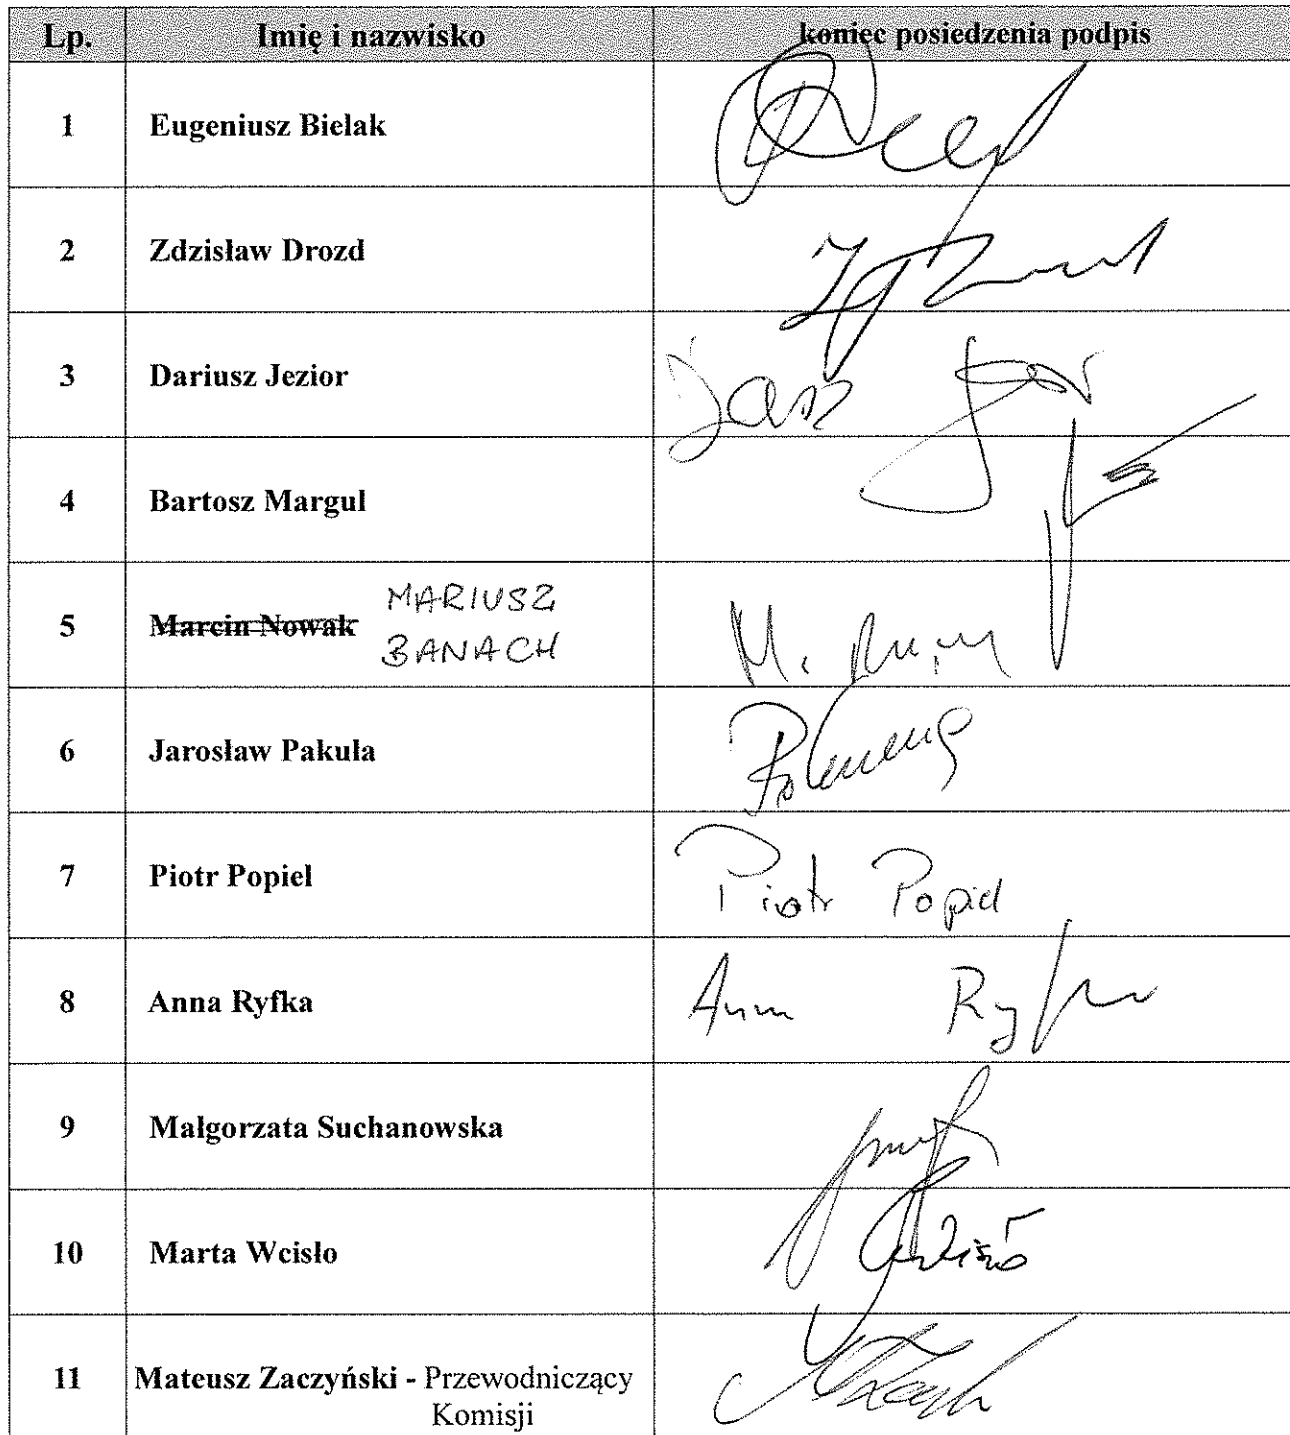 Lp. Imię i nazwisko koniec posiedzenia podpis
1 Eugeniusz Bielak
2 Zdzisław Drozd
3 Dariusz Jezior
4 Bartosz Margul
5 Marcin Nowak MARIUSZ
BANACH
6 Jarosław Pakuła
7 Piotr Popiel Piotr Popiel
8 Anna Ryfka Anna Ryfka
9 Małgorzata Suchanowska
10 Marta Wcisło
11 Mateusz Zaczyński - Przewodniczący
Komisji